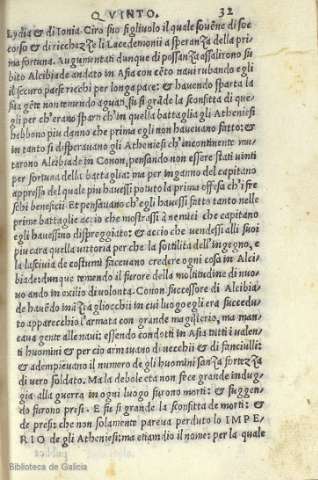 QVINTO. 32
Lydia & di Ionia. Ciro suo figliuolo il quale souẽne di soc
corso & di ricchezze li Lacedemonii a speranza della pri
ma fortuna. Augumentati dunque di possanza assalirono su
bito Alcibiade andato in Asia con cẽto naui rubando egli
il securo paese ricchi per longa pace: & hauendo sparta la
sua gẽte non temendo aguati fu si grãde la sconfitta di que-
gli per ch'erano sparsi ch'in quella battaglia gli Atheniesi
hebbono piu danno che prima egli non haueuano fatto: &
in tanto si disperauano gli Atheniesi ch'incontinente mu-
tarono Alcibiade in Conon, pensando non essere stati uinti
per fortuna della battaglia: ma per inganno del capitano
appresso del quale piu hauessi potuto la prima offesa ch'i fre
schi beneficii. Et pensauano ch'egli hauessi fatto tanto nelle
prime battaglie accio che mostrassi a nemici che capitano
egli hauessino dispreggiato: & accio che uendessi alli suoi
piu cara quella uittoria per che la sottilita dell'ingegno, e
la lasciuia de costumi faceuano credere ogni cosa in Alci-
biade: dunque temendo il furore della moltitudine di nuo-
uo ando in exilio di uolonta. Conon successore di Alcibia-
de hauẽdo inãzi a gliocchi in cui luogo egli era succedu-
to apparecchio l'armata con grande magisterio, ma man-
caua gente alle naui: essendo condotti in Asia tutti i ualen-
ti huomini & per cio armauano di uecchi & di fanciulli:
& adempieuano il numero de gli huomini sanza fortezza
di uero soldato. Ma la debole eta non fece grande indug-
gia alla guerra in ogni luogo furono morti: & fuggen-
do furono presi. E fu si grande la sconfitta de morti: &
de presi: che non solamente pareua perduto lo IMPE-
RIO de gli Atheniesi: ma etiamdio il nome: per la quale
Biblioteca de Galicia